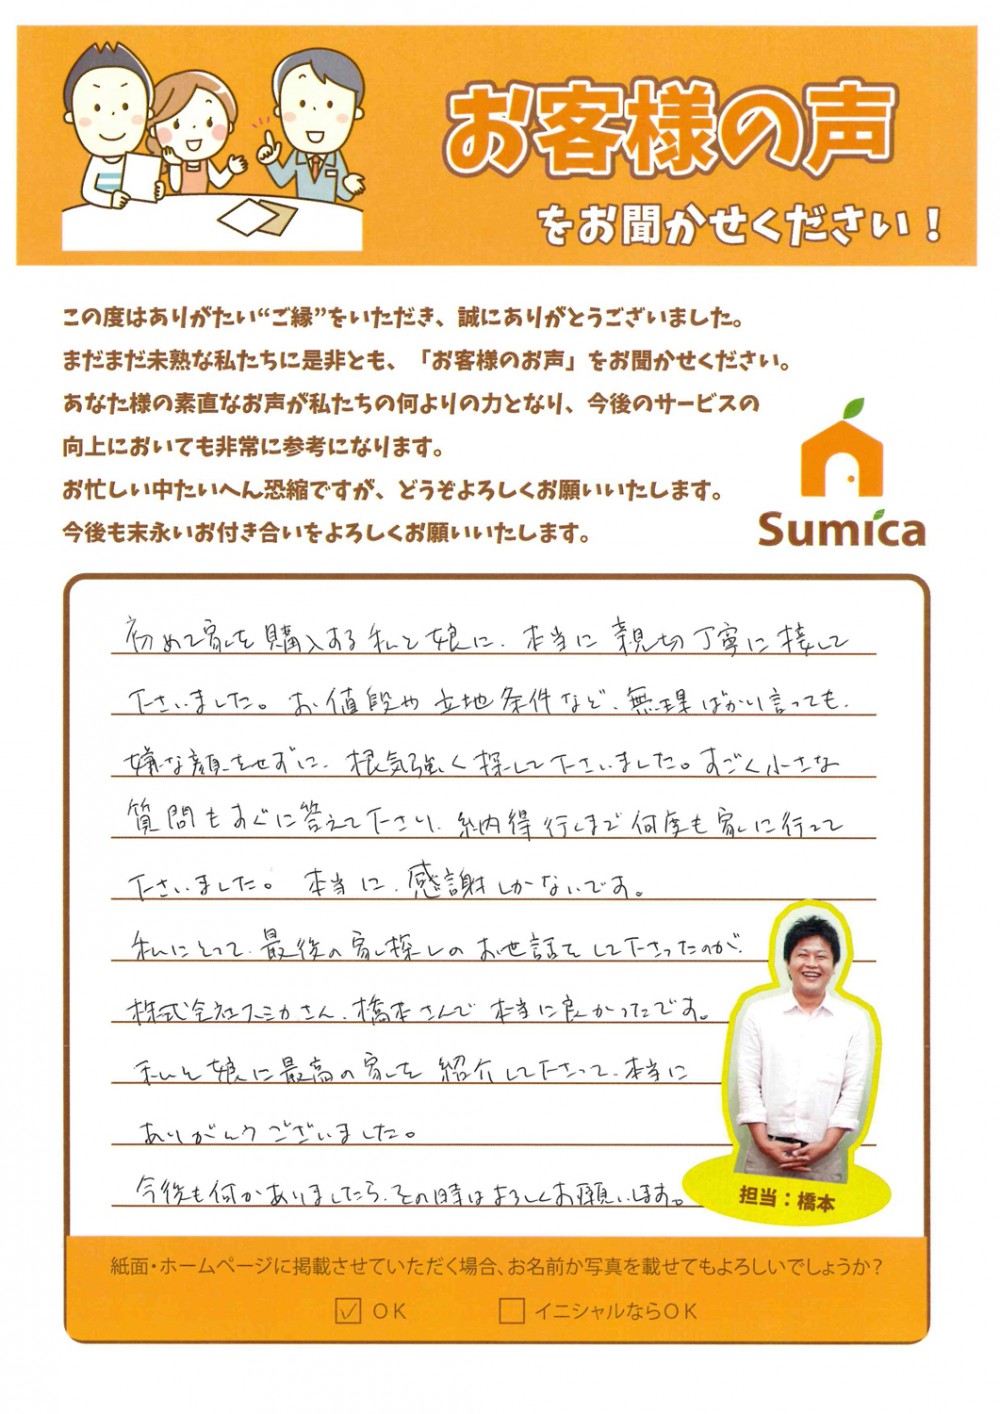 お客様の声
をお聞かせください！
この度はありがたい“ご縁”をいただき、誠にありがとうございました。
まだまだ未熟な私たちに是非とも、「お客様のお声」をお聞かせください。
あなた様の素直なお声が私たちの何よりの力となり、今後のサービスの
向上においても非常に参考になります。
お忙しい中たいへん恐縮ですが、どうぞよろしくお願いいたします。
今後も末永いお付き合いをよろしくお願いいたします。
Sumica
初めて家を購入する私と娘に、本当に親切丁寧に接して
下さいました。お値段や立地条件など、無理ばかり言っても、
嫌な顔をせずに、根気強く探して下さいました。すごく小さな
質問もすぐに答えて下さり、納得行くまで何度も家に行って
下さいました。本当に、感謝しかないです。
私にとって、最後の家探しのお世話をして下さったのが、
株式会社スミカさん、橋本さんで本当に良かったです。
私と娘に最高の家を紹介して下さって、本当に
ありがとうございました。
今後も何かありましたら、その時はよろしくお願いします。
担当：橋本
紙面・ホームページに掲載させていただく場合、お名前か写真を載せてもよろしいでしょうか？
OK イニシャルならOK